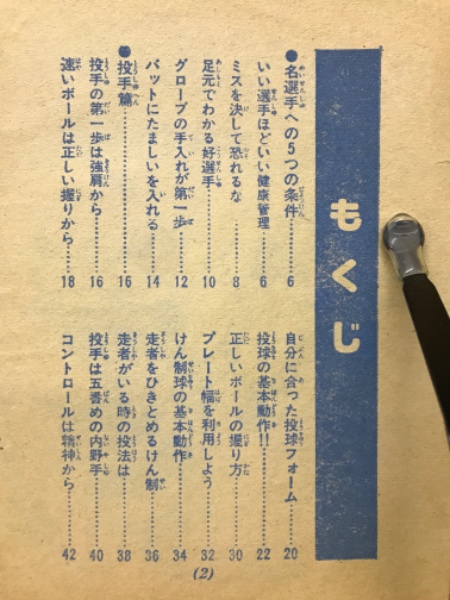 もくじ
●名選手への5つの条件……6
いい選手ほどいい健康管理……6
ミスを決して恐れるな……8
足元でわかる好選手……10
グローブの手入れが第一歩……12
バットにたましいを入れる……14
●投手篇……16
投手の第一歩は強肩から……16
速いボールは正しい握りから……18
自分に合った投球フォーム……20
投球の基本動作!!……22
正しいボールの握り方……30
プレート幅を利用しよう……32
けん制球の基本動作……34
走者をひきとめるけん制……36
走者がいる時の投法は……38
投手は五番めの内野手……40
コントロールは精神から……42
(2)